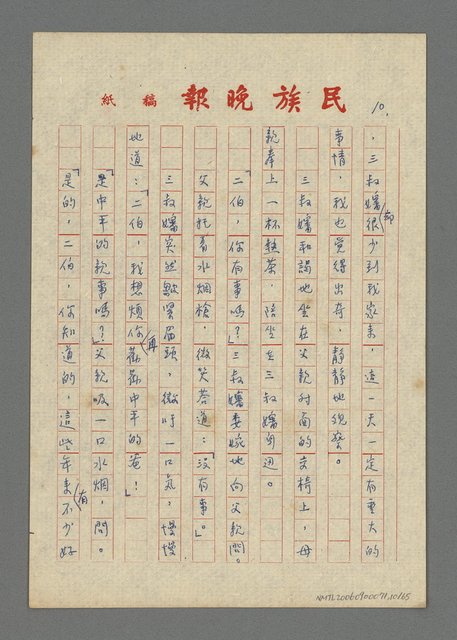 民族晚報 稿紙
10.
，三叔嬸卻很少到我家來，這一天一定有重大的
事情，我也覺得出奇，靜靜地觀察。
三叔嬸和諧地坐在父親對面的交椅上，母
親奉上一杯熱茶，陪坐在三叔嬸周邊。
「二伯，你有事嗎？」三叔嬸委婉地向父親問。
父親托着水烟槍，微笑答道：「沒有事。」
三叔嬸突然皺緊眉頭，微吁一口氣，慢慢
地道：「二伯，我想煩你再勸勸中平的爸！」
「是中平的親事嗎？」父親吸一口水烟，問。
「是的，二伯，你知道的，這些年來有不少好
NMTL20060900071,10/65